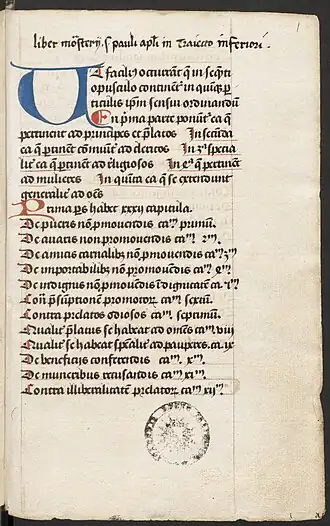 1
liber mōsterij s pauli apłi in Traiecto inferiori
Ut faciliꝰ occurrāt q̄ in seq̄nti
opusculo continēt in quīqꝫ p̄
ticulis ip̄m censui ordinandū
En p̄ma parte ponūt̄ ea q̄
pertinent ad principes et p̄latos In secūda
ea q̄ p̄tinēt cōmūit̄ ad clericos In 3ᵃ specia
lit̄ ea q̄ p̄tinēt ad religiosos In 4ᵃ q̄ p̄tinēt
ad mulieres In quīta ea q̄ se extendunt
generalit̄ ad oēs
Prima p̄s habet xxxii capitula.
De pueris nō p̄movendis caᵐ primū.
De avaris non promovendis caᵐ 2ᵐ.
De amicis carnalibꝫ nō p̄movendis caᵐ 3ᵐ
De importabilibꝫ nō promovēdis caᵐ 4ᵐ.
De indignis nō p̄movēdis ī dignitatē caᵐ 5ᵐ
Cont̄ p̄sūptionē promotor̄ caᵐ sextū.
Contra prelatos odiosos caᵐ septimū.
Qualit̄ p̄latus se habeat ad omēs caᵐ viii
Qualit̄ se habeat sp̄alit̄ ad pauperes. ca. ix
De beneficiis conferendis caᵐ xᵐ.
De muneribus recusandis caᵐ xiᵐ.
Contra illiberalitatē prelator̄ caᵐ xiiᵐ.